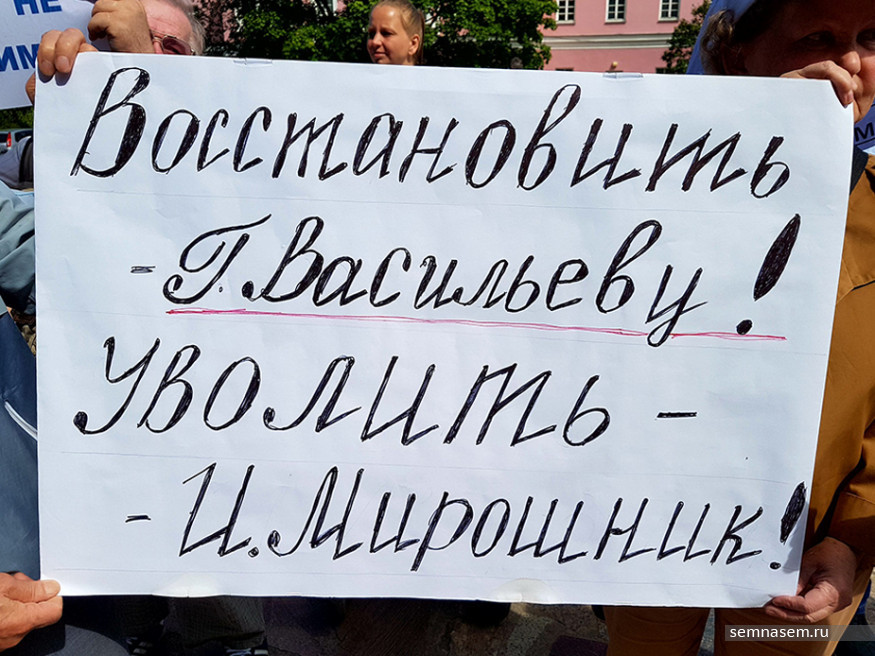 НЕ
ИМ
Восстановить
- Г. Васильеву!
Уволить -
- И. Мирошник!
semnasem.ru